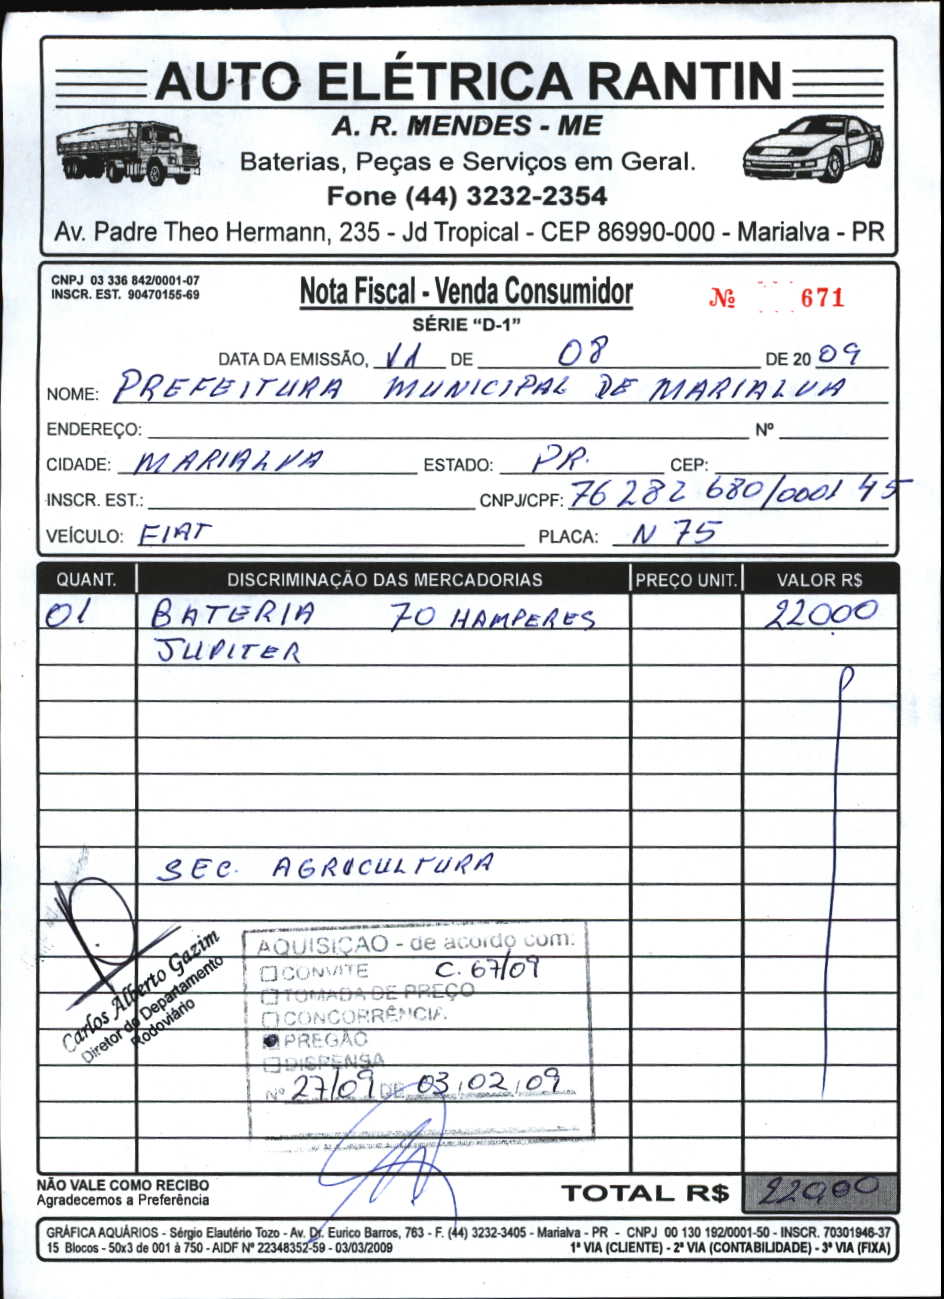 AUTO ELÉTRICA RANTIN
A. R. MENDES - ME
Baterias, Peças e Serviços em Geral.
Fone (44) 3232-2354
Av. Padre Theo Hermann, 235 - Jd Tropical - CEP 86990-000 - Marialva - PR
CNPJ 03 336 842/0001-07
INSCR. EST. 90470155-69
Nota Fiscal - Venda Consumidor
Nº 671
SÉRIE "D-1"
DATA DA EMISSÃO, 11 DE 08 DE 2009
NOME: PREFEITURA MUNICIPAL DE MARIALVA
ENDEREÇO: Nº
CIDADE: MARIALVA ESTADO: PR. CEP:
INSCR. EST.: CNPJ/CPF: 76 282 680/0001 45
VEÍCULO: FIAT PLACA: N 75
QUANT. DISCRIMINAÇÃO DAS MERCADORIAS PREÇO UNIT. VALOR R$
01 BATERIA 70 HAMPERES 22000
JUPITER
SEC. AGRICULTURA
Carlos Alberto Gazim
Diretor do Departamento
Rodoviário
AQUISIÇÃO - de acordo com:
CONVITE C. 67/09
TOMADA DE PREÇO
CONCORRÊNCIA
PREGÃO
DISPENSA
Nº 27/09 DE 03,02,09
NÃO VALE COMO RECIBO
Agradecemos a Preferência
TOTAL R$ 22000
GRÁFICA AQUÁRIOS - Sérgio Elautério Tozo - Av. Dr. Eurico Barros, 763 - F. (44) 3232-3405 - Marialva - PR - CNPJ 00 130 192/0001-50 - INSCR. 70301946-37
15 Blocos - 50x3 de 001 à 750 - AIDF Nº 22348352-59 - 03/03/2009 1ª VIA (CLIENTE) - 2ª VIA (CONTABILIDADE) - 3ª VIA (FIXA)